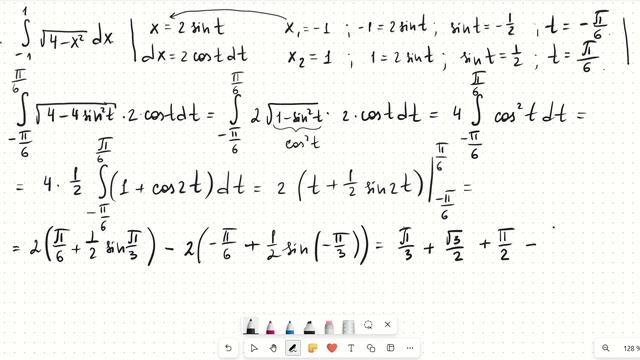 ∫₋₁¹ √(4-x²) dx | x = 2 sint x₁=-1 ; -1=2sint ; sint=-1/2 ; t = -π/6
dx = 2 cost dt x₂=1 ; 1=2sint ; sint=1/2 ; t=π/6
∫_{-π/6}^{π/6} √(4-4sin²t) · 2·cost dt = ∫_{-π/6}^{π/6} 2√(1-sin²t) · 2·cost dt = 4 ∫_{-π/6}^{π/6} cos²t dt =
cos²t
= 4 · 1/2 ∫_{-π/6}^{π/6} (1+cos2t) dt = 2 (t + 1/2 sin2t) |_{-π/6}^{π/6} =
= 2(π/6 + 1/2 sin π/3) - 2(-π/6 + 1/2 sin(-π/3)) = π/3 + √3/2 + π/2 -
128 %